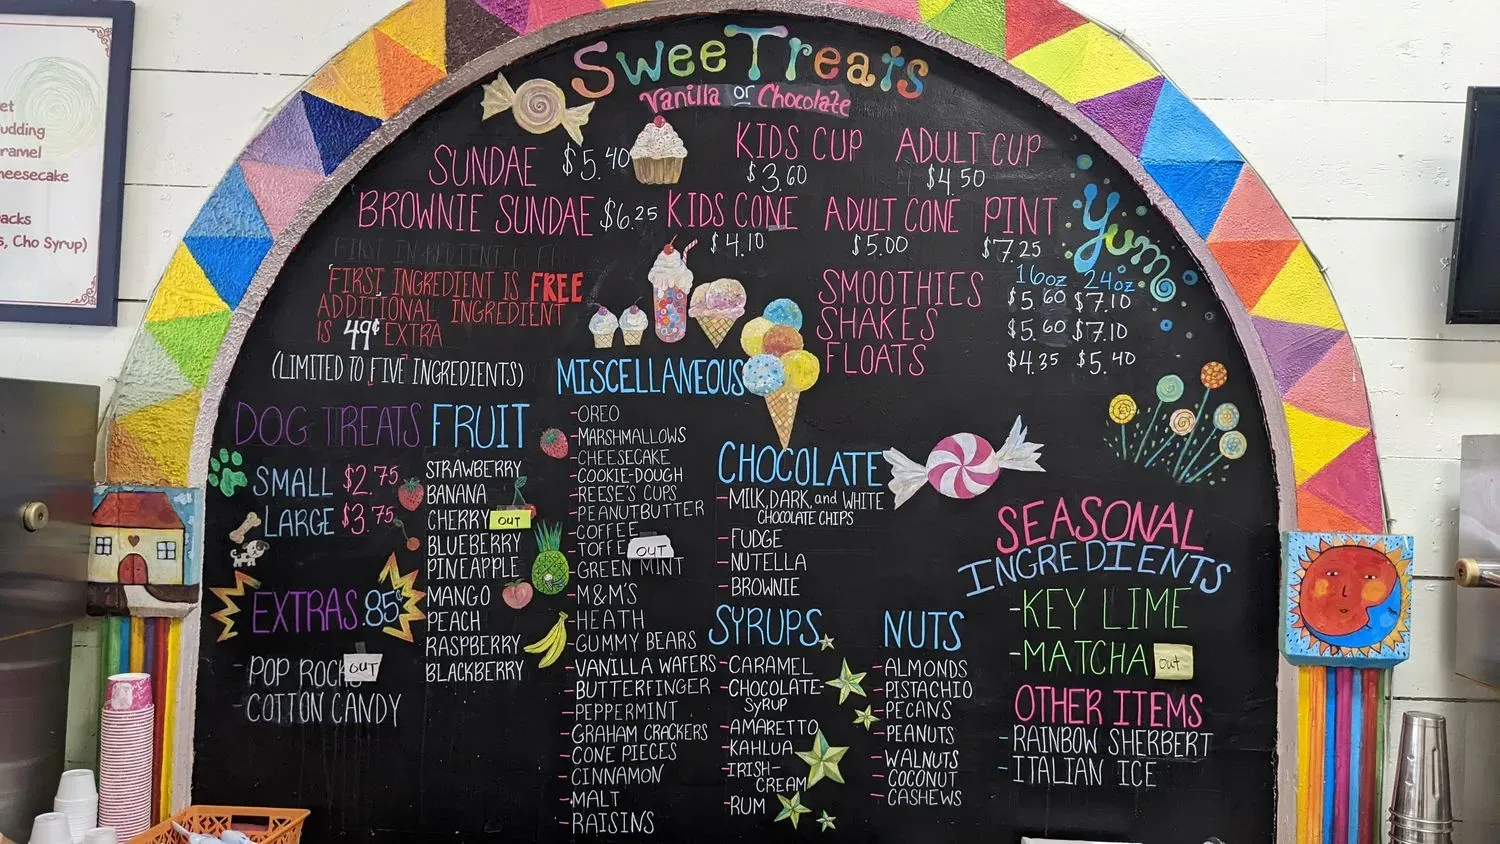 et
udding
ramel
heesecake
acks
s, Cho Syrup)
SweeTreats
Vanilla or Chocolate
SUNDAE $5.40
KIDS CUP
$3.60
ADULT CUP
$4.50
BROWNIE SUNDAE $6.25
KIDS CONE
$4.10
ADULT CONE
$5.00
PINT
$7.25
Yum
FIRST INGREDIENT IS FR
FIRST INGREDIENT IS FREE
ADDITIONAL INGREDIENT
IS 49¢ EXTRA
(LIMITED TO FIVE INGREDIENTS)
16oz 24oz
SMOOTHIES $5.60 $7.10
SHAKES $5.60 $7.10
FLOATS $4.35 $5.40
DOG TREATS
SMALL $2.75
LARGE $3.75
EXTRAS 85¢
- POP ROCK OUT
- COTTON CANDY
FRUIT
STRAWBERRY
BANANA
CHERRY OUT
BLUEBERRY
PINEAPPLE
MANGO
PEACH
RASPBERRY
BLACKBERRY
MISCELLANEOUS
-OREO
-MARSHMALLOWS
-CHEESECAKE
-COOKIE-DOUGH
-REESE'S CUPS
-PEANUTBUTTER
-COFFEE
-TOFFE OUT
-GREEN MINT
-M&M'S
-HEATH
-GUMMY BEARS
-VANILLA WAFERS
-BUTTERFINGER
-PEPPERMINT
-GRAHAM CRACKERS
-CONE PIECES
-CINNAMON
-MALT
-RAISINS
CHOCOLATE
-MILK, DARK, and WHITE
CHOCOLATE CHIPS
-FUDGE
-NUTELLA
-BROWNIE
SYRUPS
-CARAMEL
-CHOCOLATE-
SYRUP
-AMARETTO
-KAHLUA
-IRISH-
CREAM
-RUM
NUTS
-ALMONDS
-PISTACHIO
-PECANS
-PEANUTS
-WALNUTS
-COCONUT
-CASHEWS
SEASONAL
INGREDIENTS
-KEY LIME
-MATCHA out
OTHER ITEMS
-RAINBOW SHERBERT
-ITALIAN ICE